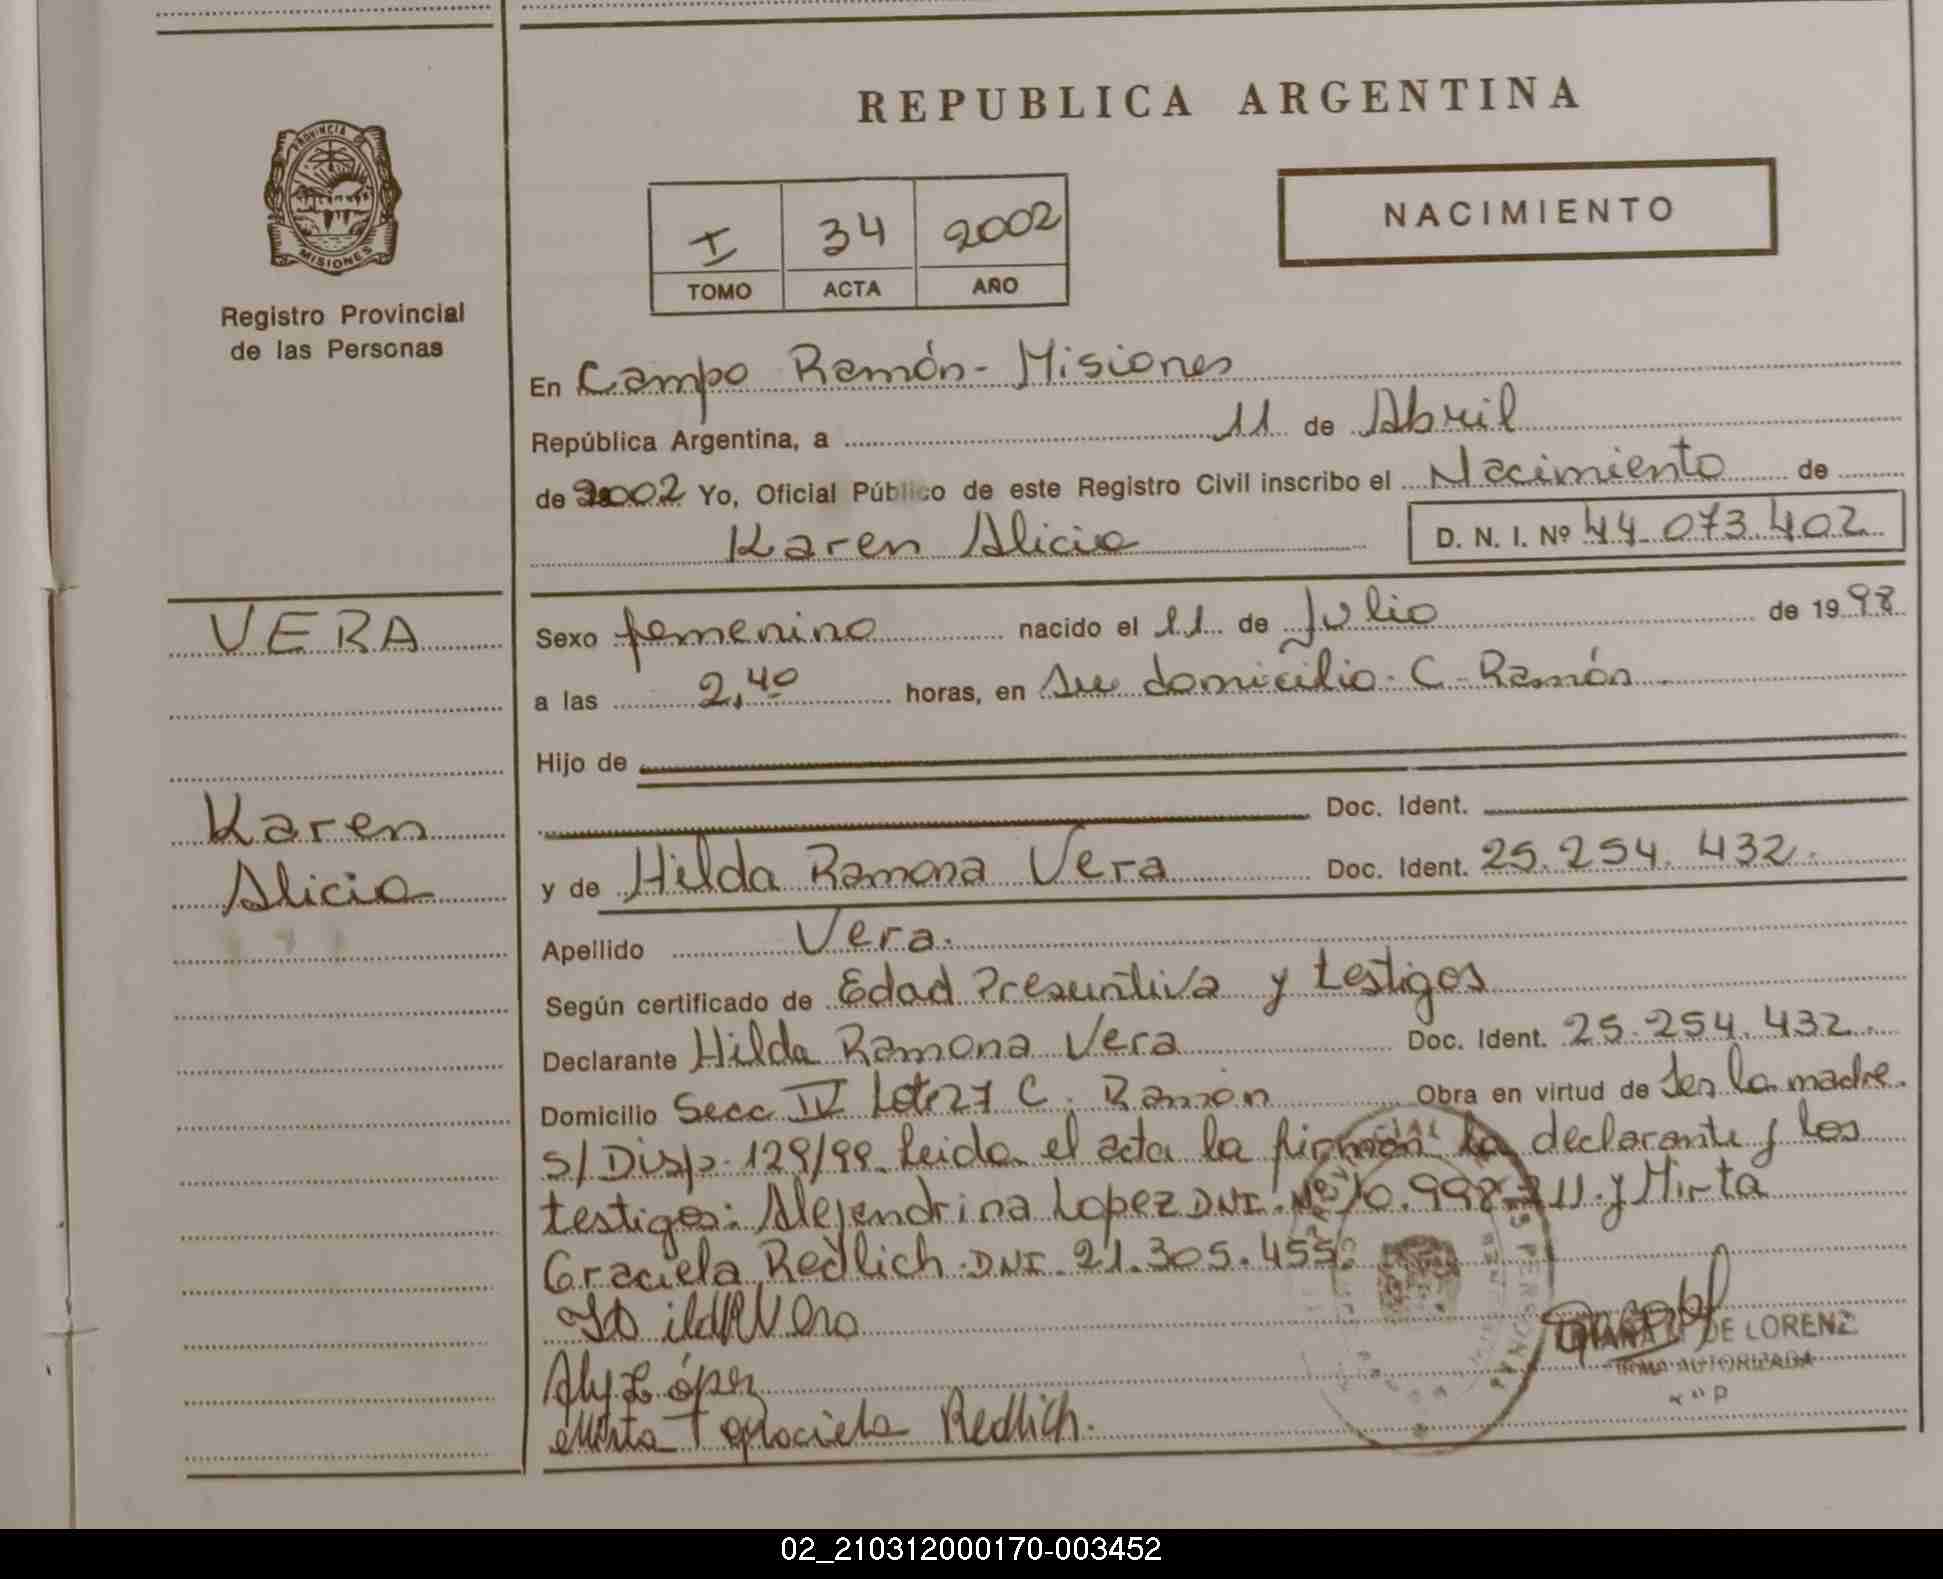 REPUBLICA ARGENTINA
PROVINCIA DE MISIONES
Registro Provincial
de las Personas
I 34 2002
TOMO ACTA AÑO
NACIMIENTO
En Campo Ramón - Misiones
República Argentina, a 11 de Abril
de 2002 Yo, Oficial Público de este Registro Civil inscribo el Nacimiento de
Karen Alicia D. N. I. Nº 44.073.402
VERA
Karen
Alicia
Sexo femenino nacido el 11 de Julio de 1998
a las 2,40 horas, en su domicilio - C. Ramón
Hijo de
Doc. Ident.
y de Hilda Ramona Vera Doc. Ident. 25.254.432.
Apellido Vera.
Según certificado de Edad Presuntiva y testigos
Declarante Hilda Ramona Vera Doc. Ident. 25.254.432.
Domicilio Secc IV Lote 27 C. Ramón Obra en virtud de ser la madre.
s/Disp. 129/99. Leida el acta la firman la declarante y los
testigos: Alejandrina Lopez DNI. Nº 10.998.211. y Mirta
Graciela Redlich. DNI. 21.305.455.
Hilda R Vera
Alej López
Mirta Graciela Redlich.
DE LORENZ
FIRMA AUTORIZADA
02_210312000170-003452